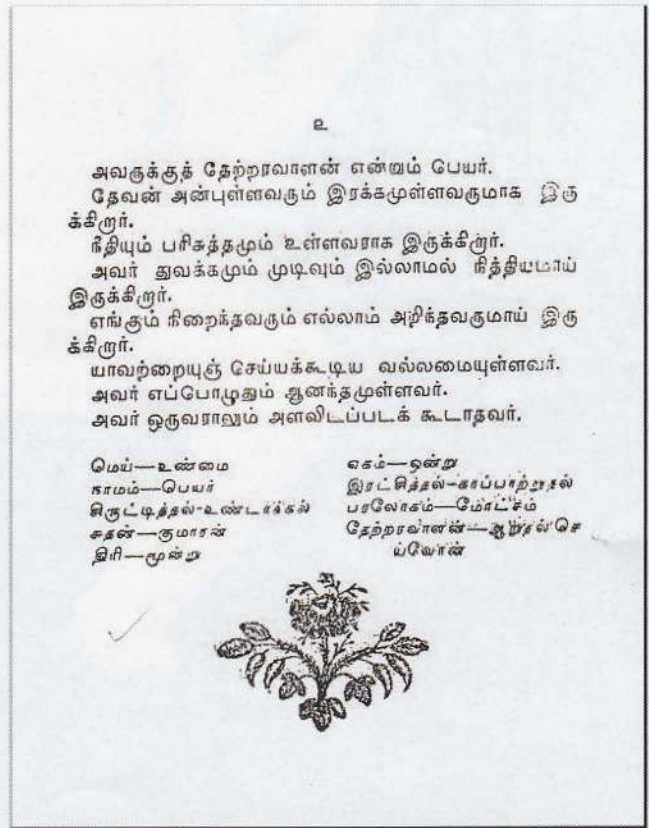 உ
அவருக்குத் தேற்றரவாளன் என்றும் பெயர்.
தேவன் அன்புள்ளவரும் இரக்கமுள்ளவருமாக இரு
க்கிறார்.
நீதியும் பரிசுத்தமும் உள்ளவராக இருக்கிறார்.
அவர் துவக்கமும் முடிவும் இல்லாமல் நித்தியமாய்
இருக்கிறார்.
எங்கும் நிறைந்தவரும் எல்லாம் அறிந்தவருமாய் இரு
க்கிறார்.
யாவற்றையுஞ் செய்யக்கூடிய வல்லமையுள்ளவர்.
அவர் எப்பொழுதும் ஆனந்தமுள்ளவர்.
அவர் ஒருவராலும் அளவிடப்படக் கூடாதவர்.
மெய்—உண்மை
நாமம்—பெயர்
கிருட்டித்தல்-உண்டாக்கல்
சுதன்—குமாரன்
திரி—மூன்று
ஏகம்—ஒன்று
இரட்சித்தல்-காப்பாற்றுதல்
பரலோகம்—மோட்சம்
தேற்றரவாளன்—ஆறுதல் செ
ய்வோன்